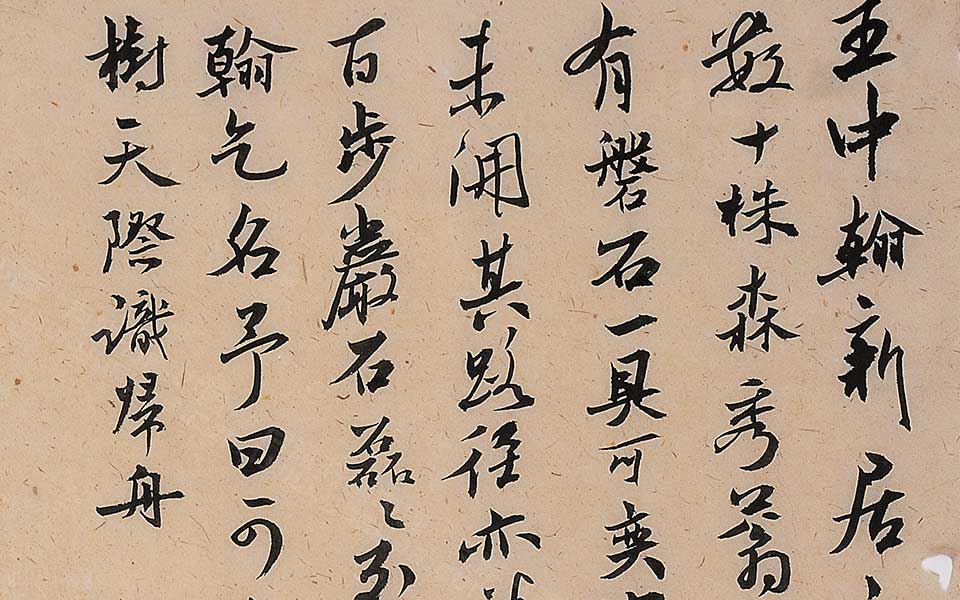 王中翰新居
数十株森秀蓊
有磐石一具可奕
未開其路径亦
百步巖石磊〻
翰乞名予曰可
樹天際識帰舟